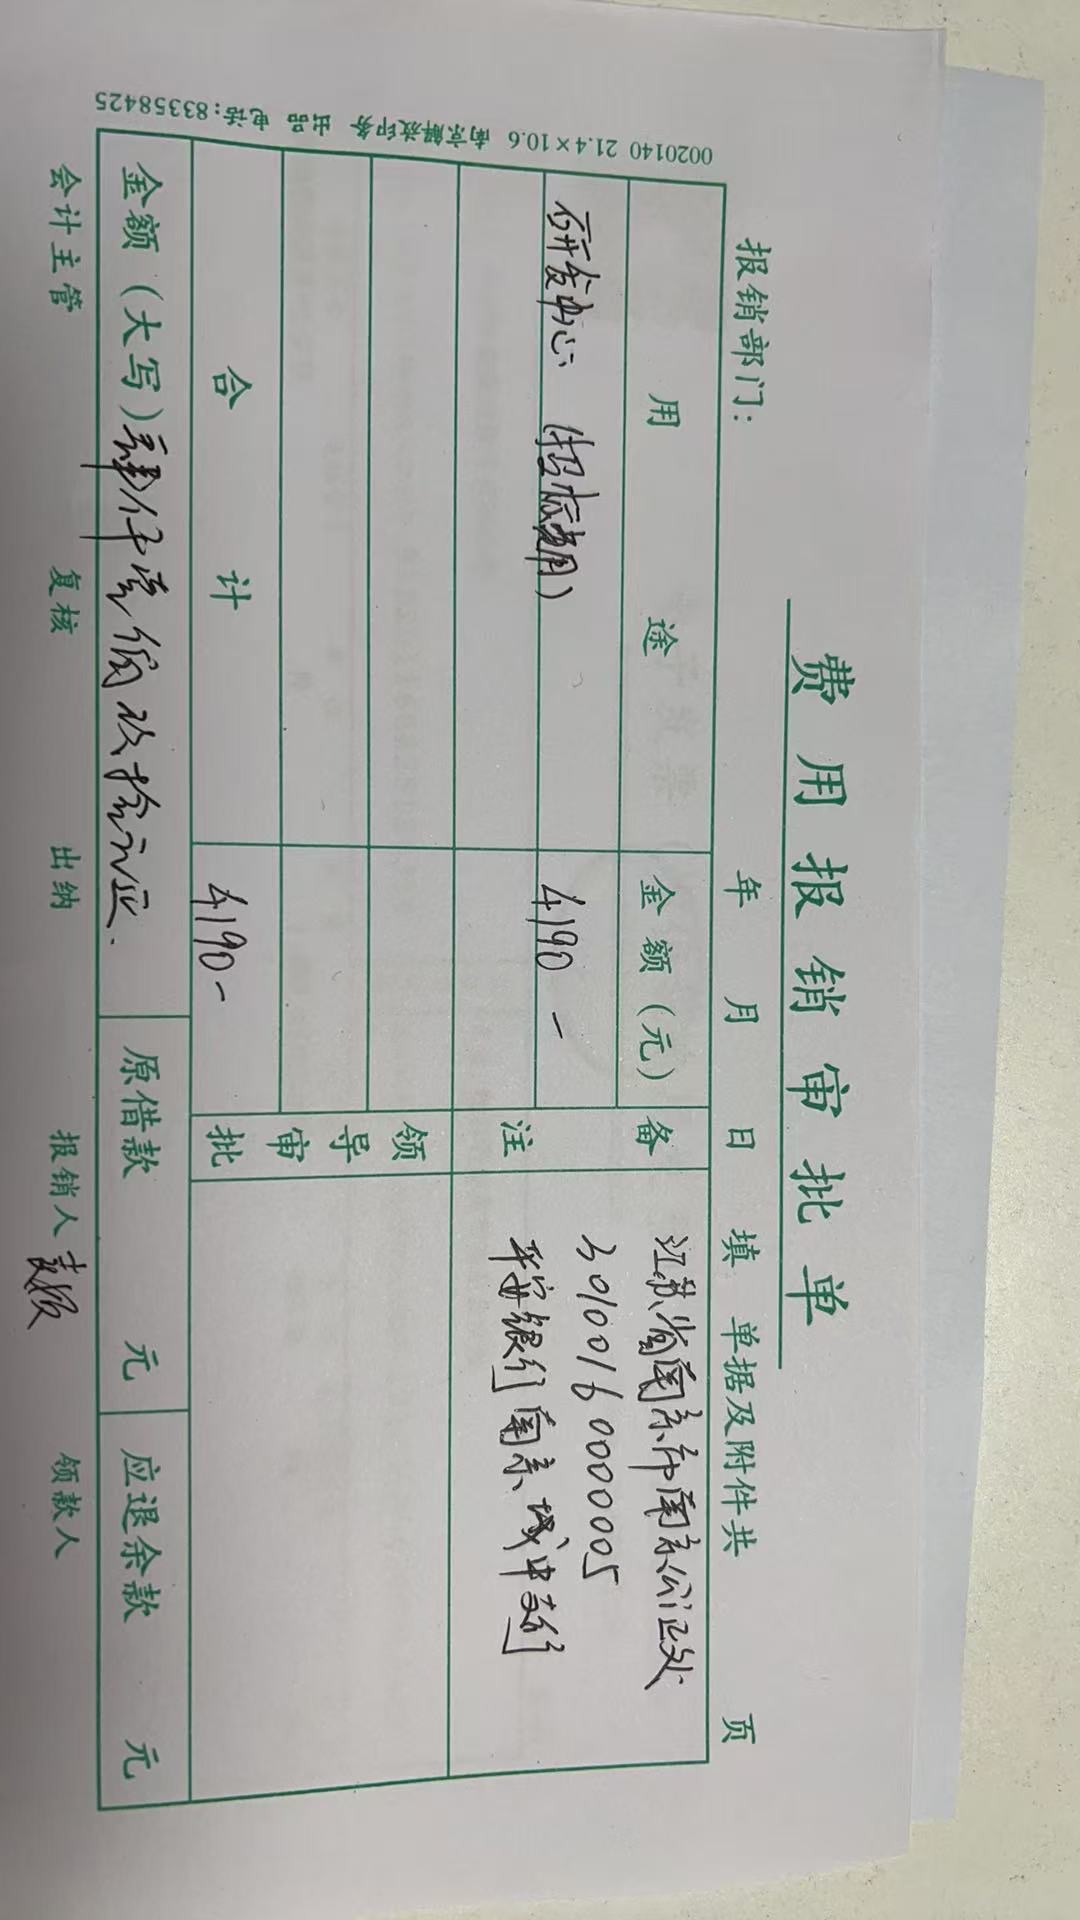 费用报销审批单
报销部门： 年 月 日填 单据及附件共 页
用途 金额（元） 备注
研发中心（招标费用） 4190－
江苏省南京市南京公证处
30100160000005
平安银行南京城中支行
领导审批
合计 4190－
金额（大写）肆仟壹佰玖拾元正. 原借款 元 应退余款 元
会计主管 复核 出纳 报销人 领款人
0020140 21.4×10.6 南京解放印务 出品 电话：83358425